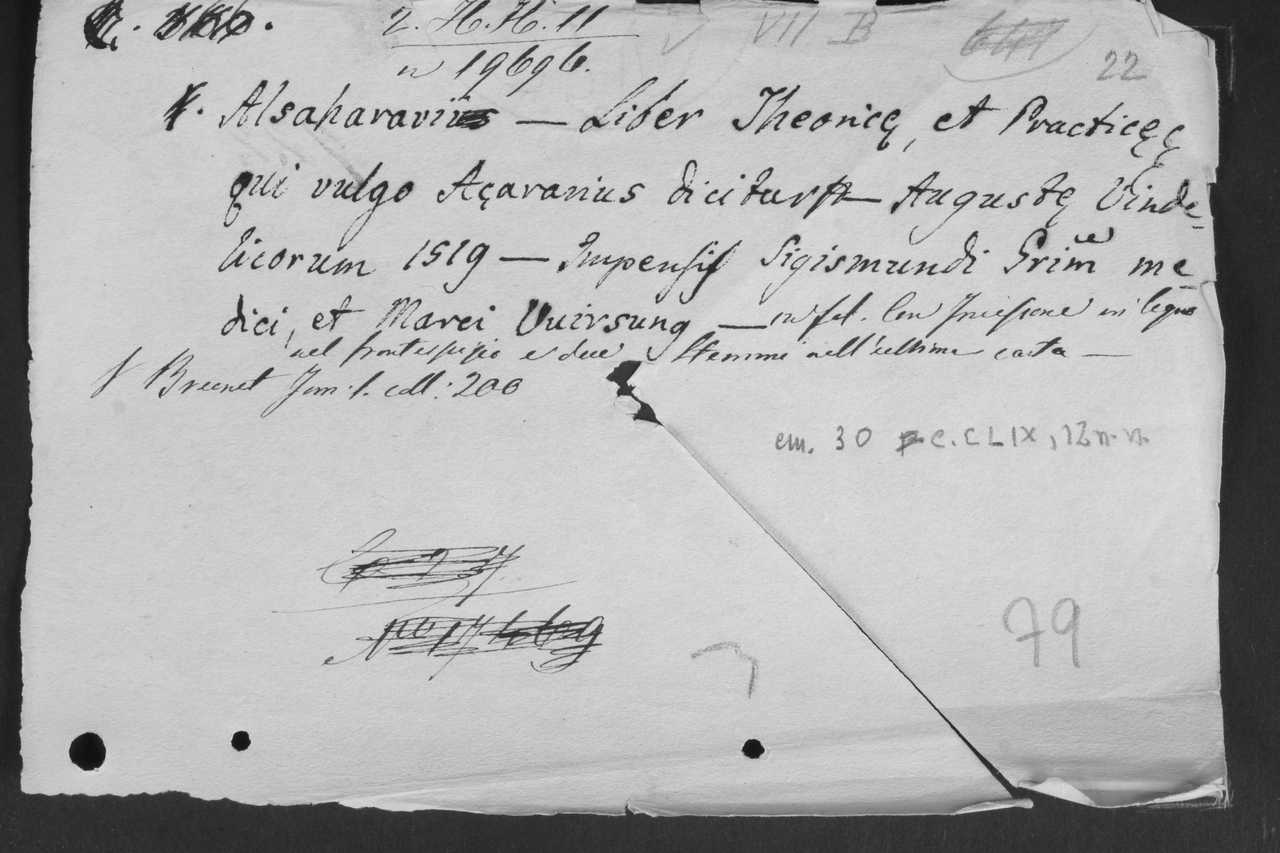 2. H. H. 11 VII B
n 19696. 22
Alsaharavii — Liber Theoricę, et Practicęę
qui vulgo Açararius dicitur — Augustę Vinde-
licorum 1519 — Impensis Sigismundi Grim̃ me
dici, et Marci Vuirsung — in fol. Con Incisione in legno
nel frontespizio e due Stemmi nell'ultima carta —
V Brunet Tom. 1. coll: 200
cm. 30 c. CLIX, 12 n. n.
79